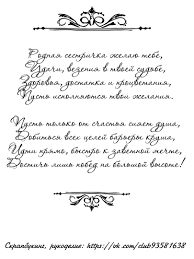 Родная сестричка желаю тебе,
Удачи, везения в твоей судьбе,
Здоровья, достатка и процветания,
Пусть исполняются твои желания.
Пусть только от счастья сияет душа,
Добиться всех целей барьеры круша,
Иди прямо, быстро к заветной мечте,
Достичь лишь побед на большой высоте!
Скрапбукинг, рукоделие: https://ok.com/club93581638